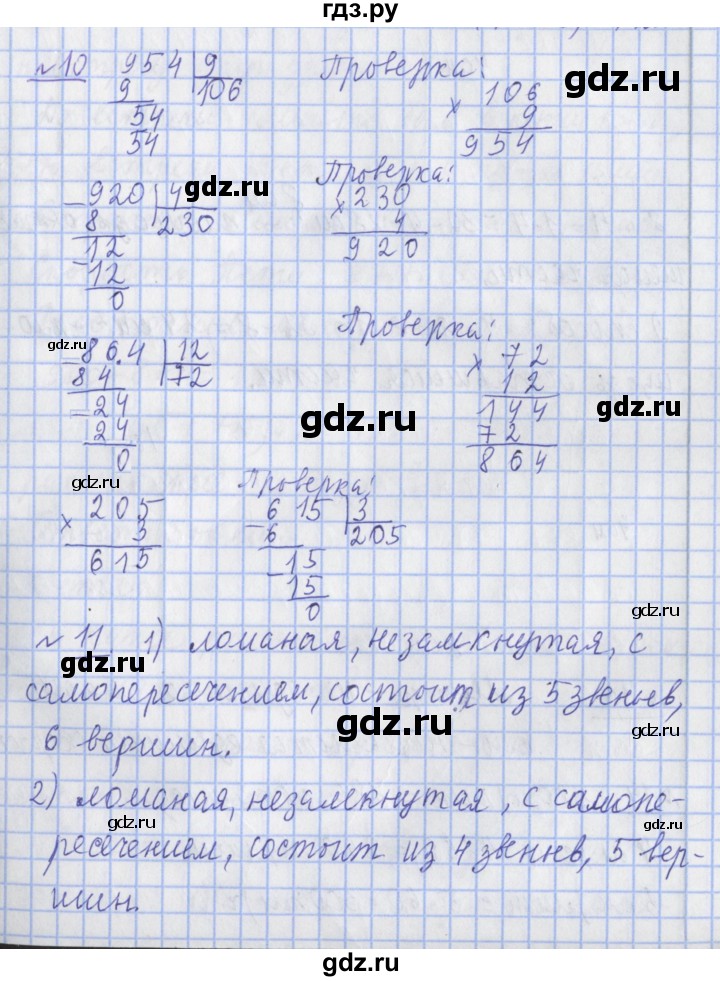 гдз.ру
№10 954 9 Проверка:
9 106 × 106
54 9
54 954
gdz.ru
Проверка:
− 920 4 × 230
8 230 4
− 12 920
12
0
gdz.ru
gdz.ru
Проверка:
− 86.4 12 × 72
84 72 12
− 24 144
24 72
0 864
gdz.ru
gdz.ru
gdz.ru
gdz.ru
Проверка:
× 205 − 615 3
3 6 205
615 − 15
15
0
gdz.ru
gdz.ru
gdz.ru
№11 1) ломаная, незамкнутая, с
самопересечением, состоит из 5 звеньев,
6 вершин.
gdz.ru
gdz.ru
2) ломаная, незамкнутая, с самопе-
ресечением, состоит из 4 звеньев, 5 вер-
шин.
gdz.ru
gdz.ru
gdz.ru
gdz.ru